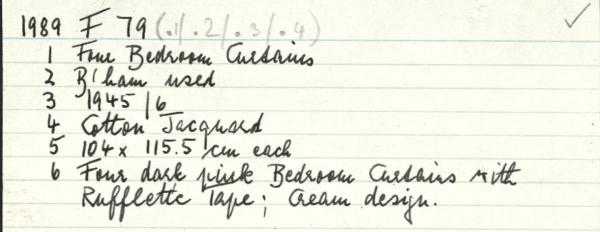 1989 F 79 (.1/.2/.3/.4)
1 Four Bedroom Curtains
2 B'ham used
3 1945/6
4 Cotton Jacquard
5 104 x 115.5 cm each
6 Four dark pink Bedroom Curtains with
Rufflette Tape; Cream design.